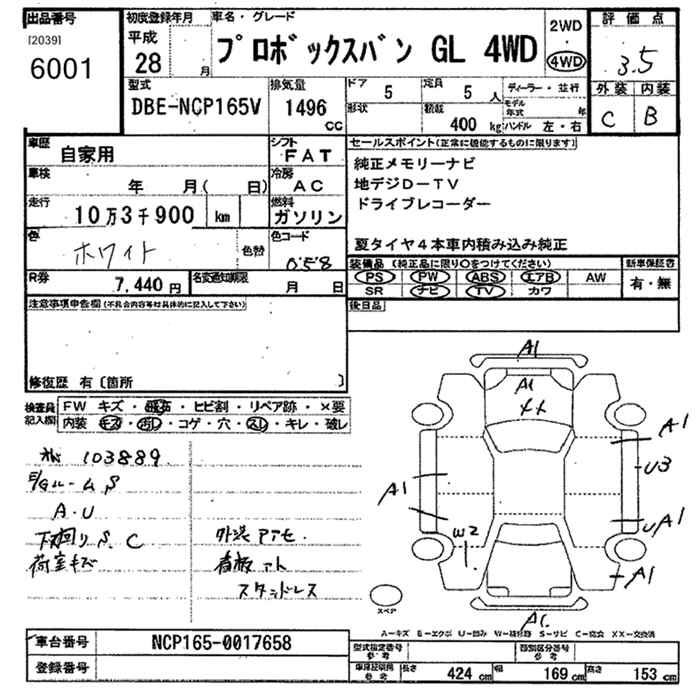 出品番号 初度登録年月 車名・グレード 評価点
[2039] 平成
6001 28 月 プロボックスバン GL 4WD 2WD 4WD 3.5
型式 排気量 ドア 定員 ディーラー・並行 外装 内装
DBE-NCP165V 1496 CC 5 5人 モデル年式 年 C B
形状 積載 400 kg ハンドル 左・右
車歴 シフト セールスポイント(正常に機能するものに限ります)
自家用 FAT 純正メモリーナビ
車検 冷房 地デジD-TV
年 月( 日) AC ドライブレコーダー
走行 燃料
10万3千900 km ガソリン
色 色替 色コード 夏タイヤ4本車内積み込み純正
ホワイト 058 装備品(純正品に限り○をつけてください) 新車保証書
R券 名変通知期限 PS PW ABS エアB AW 有・無
7,440円 月 日 SR ナビ TV カワ
注意事項申告欄(不具合内容等は具体的に記入して下さい) 後日品
修復歴 有〔箇所 〕
検査員記入欄 FW キズ・飛石・ヒビ割・リペア跡・×要
内装 キズ・コゲ・穴・スレ・キレ・破レ
103889
ルーム S
A.U
下廻りS.C 外装アセ.
荷室キズ 看板アト
スタッドレス
A1
A1
A1
U3
A1
UA1
W2
A1
スペア
A-キズ B-エクボ U-凹み W-補修跡 S-サビ C-腐食 XX-交換済
車台番号 NCP165-0017658 型式指定番号 参考 類別区分番号 参考
登録番号 車庫証明用 参考 長さ 424 cm 幅 169 cm 高さ 153 cm